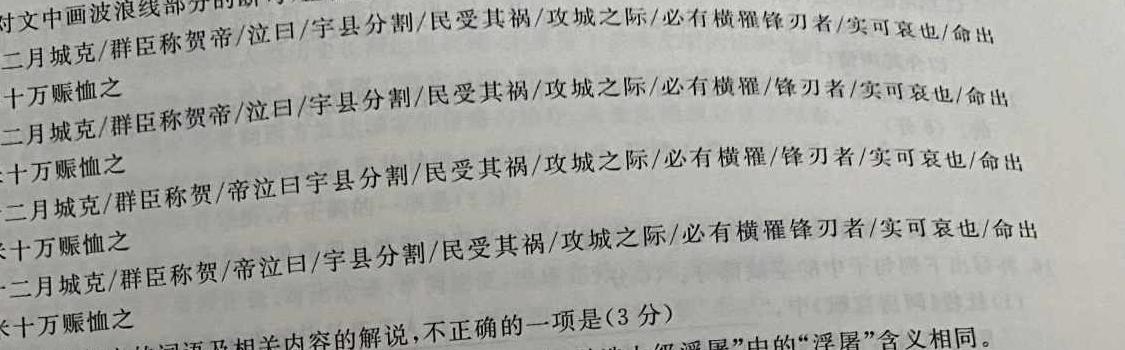 对文中画波浪线部分的断
二月城克/群臣称贺帝/泣曰/宇县分割/民受其祸/攻城之际/必有横罹锋刃者/实可哀也/命出
十万赈恤之
二月城克/群臣称贺帝/泣曰/宇县分割/民受其祸/攻城之际/必有横罹/锋刃者/实可哀也/命出
十万赈恤之
二月城克/群臣称贺/帝泣曰宇县分割/民受其祸/攻城之际/必有横罹/锋刃者/实可哀也/命出
米十万赈恤之
二月城克/群臣称贺/帝泣曰/宇县分割/民受其祸/攻城之际/必有横罹锋刃者/实可哀也/命出
米十万赈恤之
词语及相关内容的解说,不正确的一项是(3分)
浮屠”中的“浮屠”含义相同。